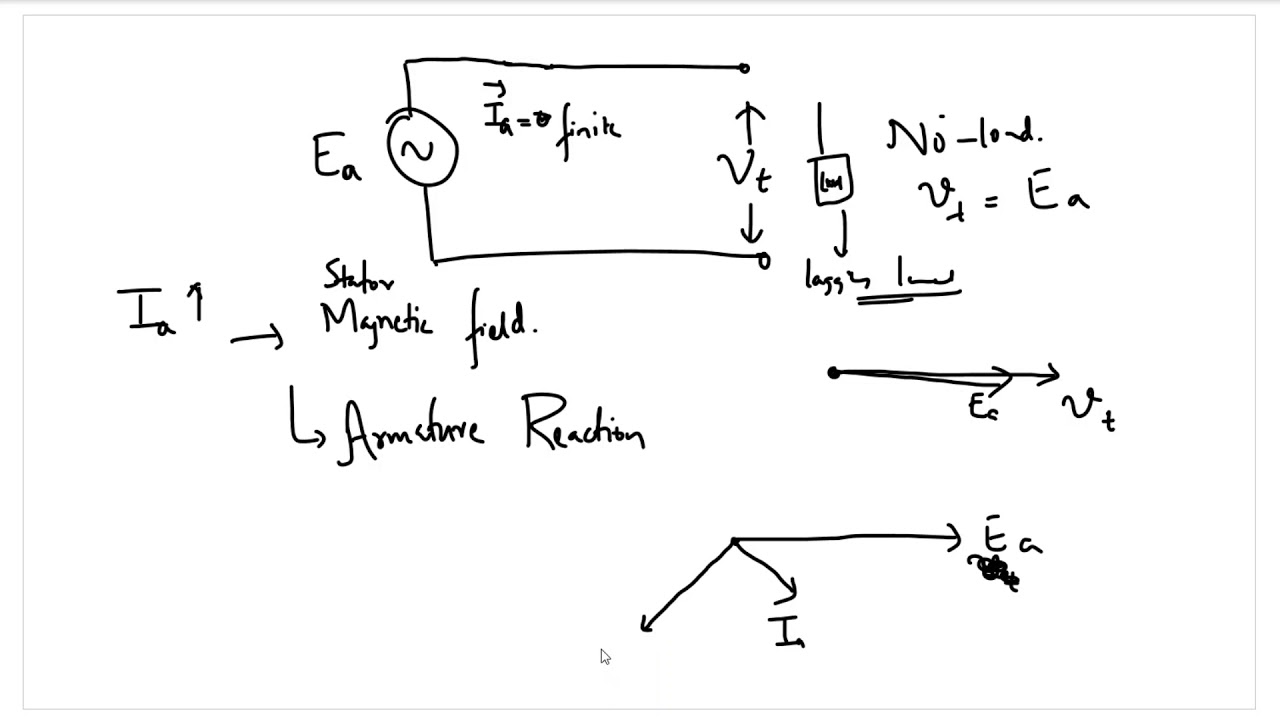 Ea
Ia = 0 finite
Vt
No-load.
Vt = Ea
load
lagging load
Ia ↑ →
Stator
Magnetic field.
↳ Armature Reaction
Ea
Vt
Ea
Ia